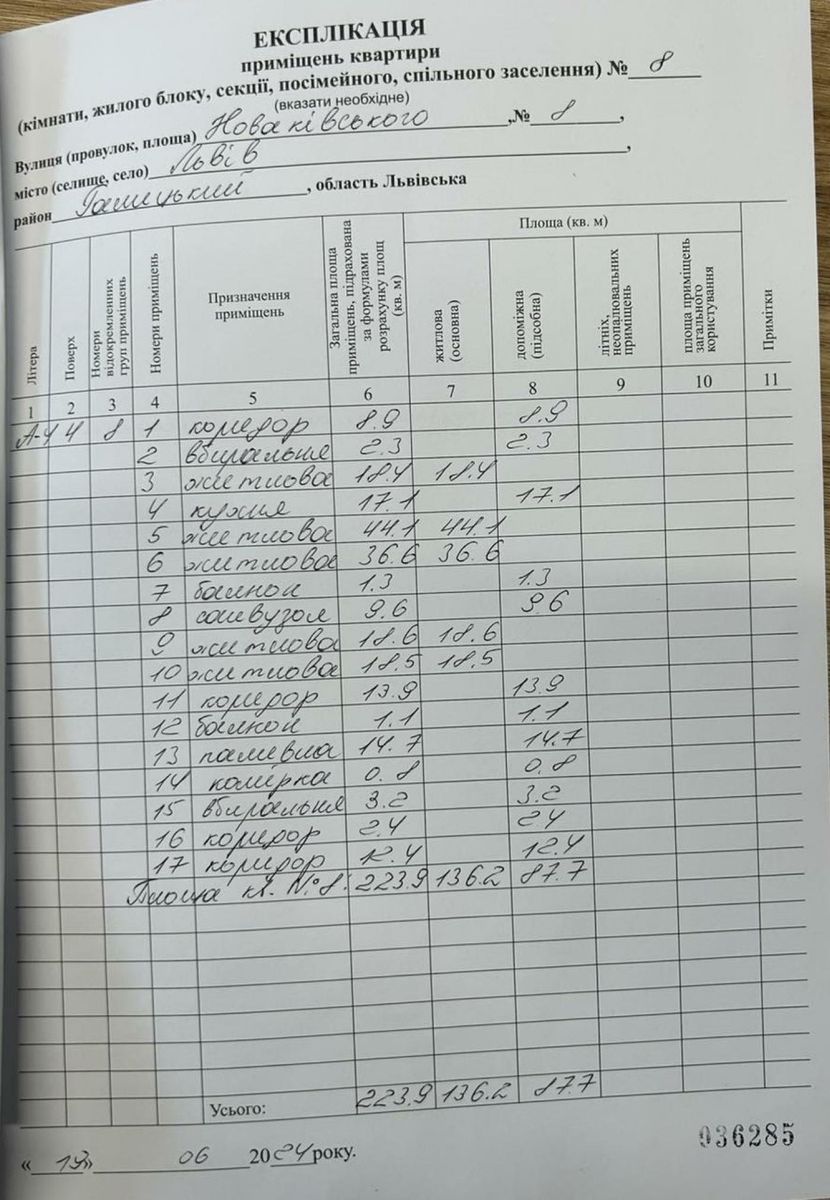 ЕКСПЛІКАЦІЯ
приміщень квартири
(кімнати, жилого блоку, секції, посімейного, спільного заселення) № 8
(вказати необхідне)
Вулиця (провулок, площа) Новаківського, № 8,
місто (селище, село) Львів,
район Галицький, область Львівська
Літера Поверх Номери відокремленних груп приміщень Номери приміщень Призначення приміщень Загальна площа приміщень, підрахована за формулами розрахунку площ (кв. м) Площа (кв. м) житлова (основна) допоміжна (підсобна) літніх, неопалювальних приміщень площа приміщень загального користування Примітки
1 2 3 4 5 6 7 8 9 10 11
А-4 4 8 1 коридор 8.9 8.9
2 вбиральня 2.3 2.3
3 житлова 18.4 18.4
4 кухня 17.1 17.1
5 житлова 44.1 44.1
6 житлова 36.6 36.6
7 балкон 1.3 1.3
8 санвузол 9.6 9.6
9 житлова 18.6 18.6
10 житлова 18.5 18.5
11 коридор 13.9 13.9
12 балкон 1.1 1.1
13 паливна 14.7 14.7
14 комірка 0.8 0.8
15 вбиральня 3.2 3.2
16 коридор 2.4 2.4
17 коридор 12.4 12.4
Площа кв. № 8: 223.9 136.2 87.7
Усього: 223.9 136.2 87.7
036285
«19» 06 2024 року.